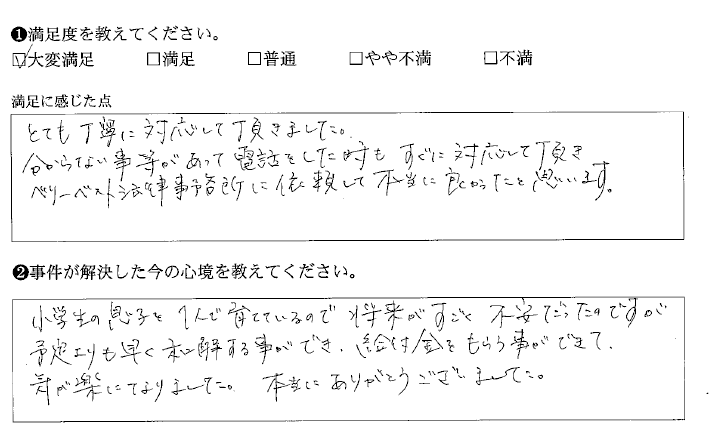 ❶満足度を教えてください。
☑大変満足 □満足 □普通 □やや不満 □不満
満足に感じた点
とても丁寧に対応して頂きました。
分からない事等があって電話をした時もすぐに対応して頂き
ベリーベスト法律事務所に依頼して本当に良かったと思います。
❷事件が解決した今の心境を教えてください。
小学生の息子を1人で育てているので将来がすごく不安だったのですが
予定よりも早く和解する事ができ、給付金をもらう事ができて、
気が楽になりました。本当にありがとうございました。